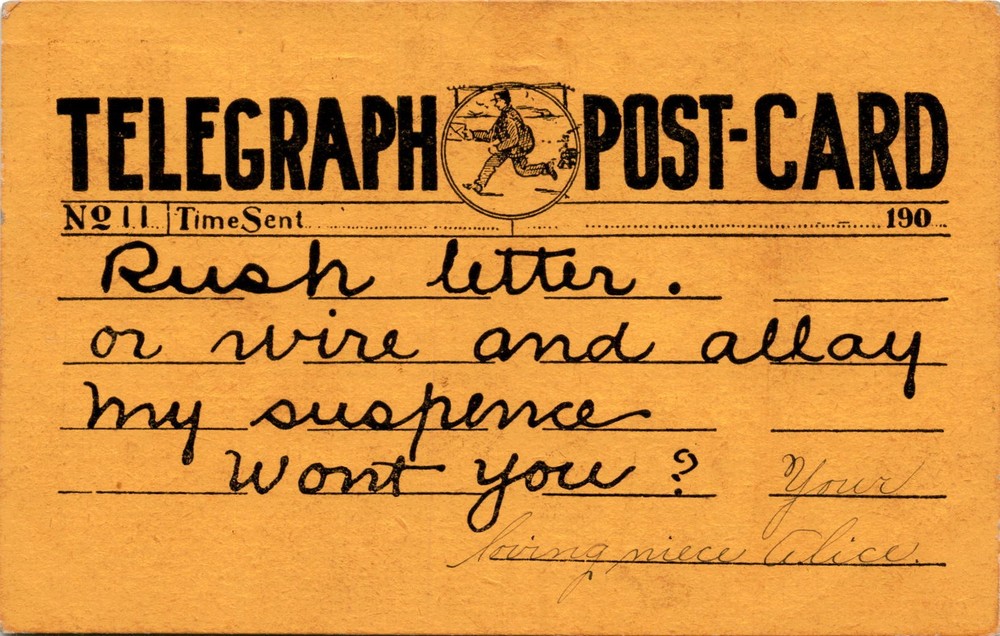 TELEGRAPH POST-CARD
No 11 Time Sent 190
Rush letter.
or wire and allay
my suspence
Wont you?
Your
loving niece Alice.